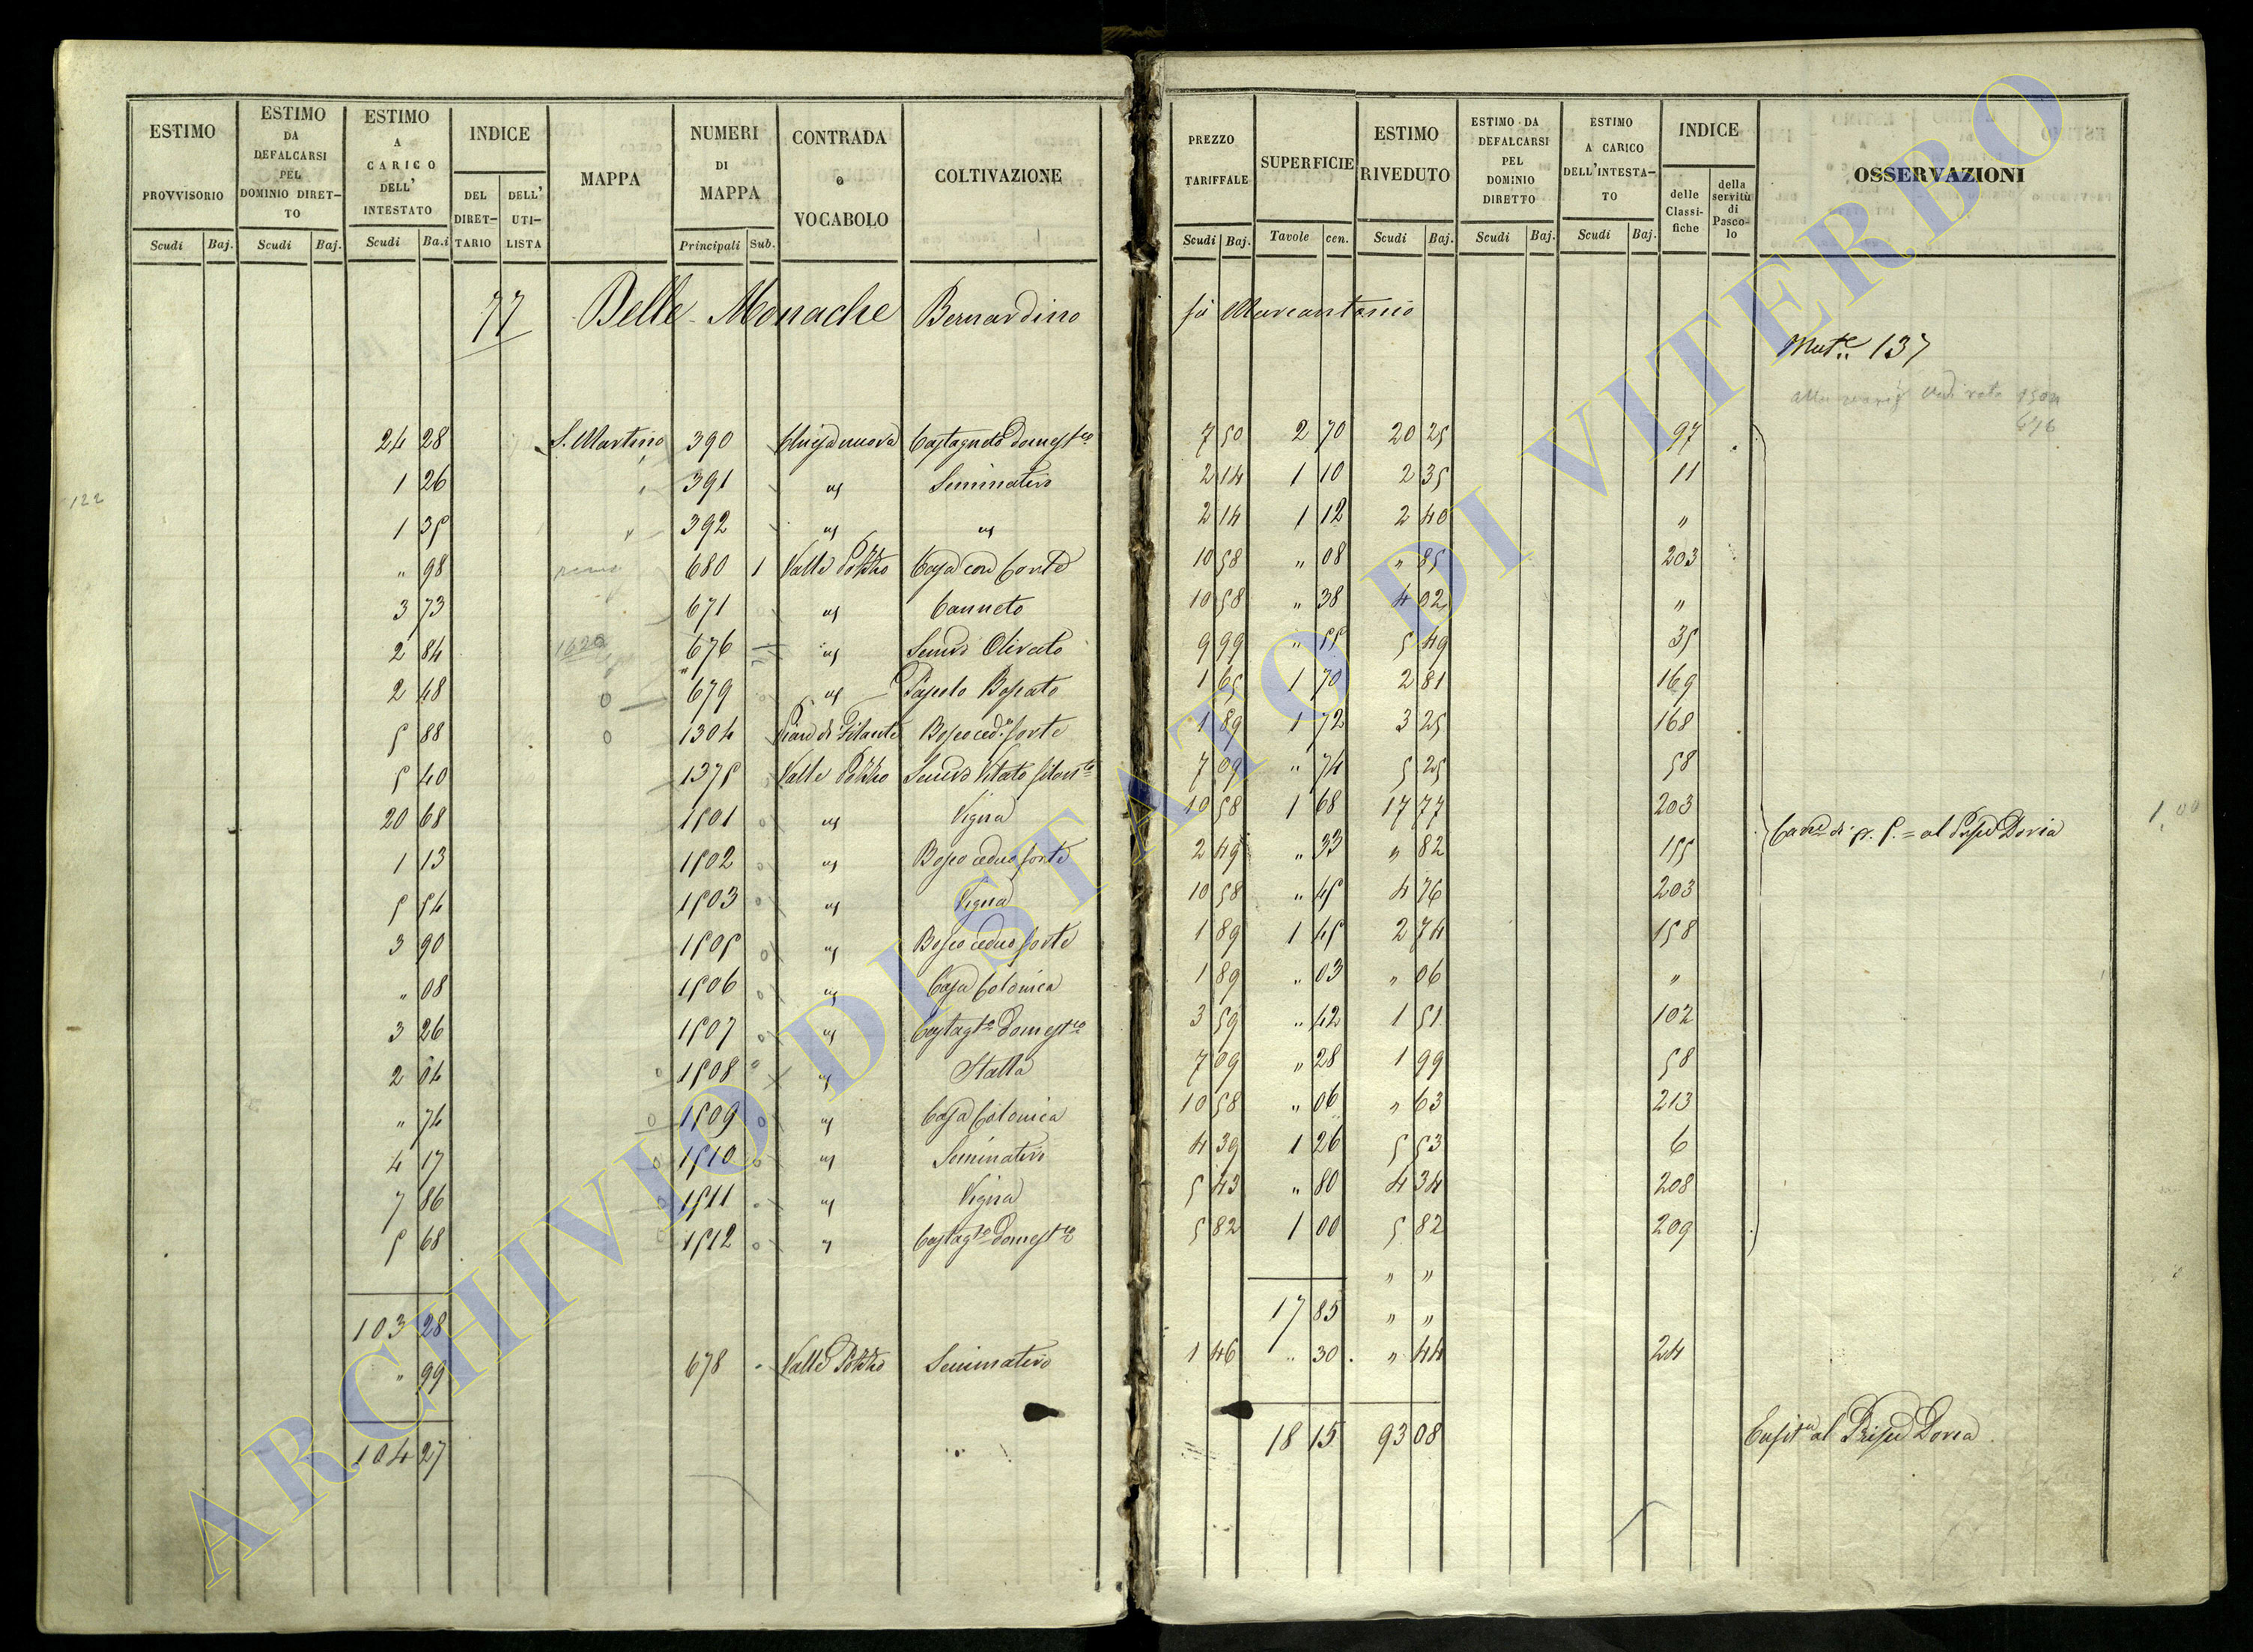 ESTIMO PROVVISORIO Scudi Baj. | ESTIMO DA DEFALCARSI PEL DOMINIO DIRETTO Scudi Baj. | ESTIMO A CARICO DELL' INTESTATO Scudi Ba.i | INDICE DEL DIRETTARIO DELL' UTILISTA | MAPPA | NUMERI DI MAPPA Principali Sub. | CONTRADA o VOCABOLO | COLTIVAZIONE | PREZZO TARIFFALE Scudi Baj. | SUPERFICIE Tavole cen. | ESTIMO RIVEDUTO Scudi Baj. | ESTIMO DA DEFALCARSI PEL DOMINIO DIRETTO Scudi Baj. | ESTIMO A CARICO DELL'INTESTATO Scudi Baj. | INDICE delle Classifiche della servitù di Pascolo | OSSERVAZIONI
77 Delle Monache Bernardino fù Marcantonio
Mut.e 137
24 28 S. Martino 390 Chiesa nuova Castagneto domest.co 7 50 2 70 20 25 97
1 26 " 391 " Seminativo 2 14 1 10 2 35 11
122
1 35 " 392 " " 2 14 1 12 2 40 "
" 98 680 1 Valle Pozzo Casa con Corte 10 58 " 08 " 85 203
3 73 671 " Canneto 10 58 " 38 4 02 "
2 84 1620 676 " Semvo Olivato 9 99 " 55 5 49 35
2 48 679 " Pascolo Boscato 1 65 1 70 2 81 169
5 88 1304 Bosco ced. forte 1 89 1 72 3 25 168
5 40 1375 Valle Pozzo Semvo Vitato 7 09 " 74 5 25 58
20 68 1501 " Vigna 10 58 1 68 17 77 203
al Prpe Doria
1,00
1 13 1502 " Bosco ceduo forte 2 49 " 33 " 82 155
5 54 1503 " Vigna 10 58 " 45 4 76 203
3 90 1505 " Bosco ceduo forte 1 89 1 45 2 74 158
" 08 1506 " Casa Colonica 1 89 " 03 " 06 "
3 26 1507 " Castagto domestco 3 59 " 42 1 51 102
2 04 1508 " Stalla 7 09 " 28 1 99 58
" 74 1509 " Casa Colonica 10 58 " 06 " 63 213
4 17 1510 " Seminativo 4 39 1 26 5 53 6
7 86 1511 " Vigna 5 43 " 80 4 34 208
5 68 1512 " Castagto domestco 5 82 1 00 5 82 209
" "
103 28 17 85 " "
" 99 678 Valle Pozzo Seminativo 1 46 " 30 " 44 24
104 27 18 15 93 08 al Doria
ARCHIVIO DI STATO DI VITERBO